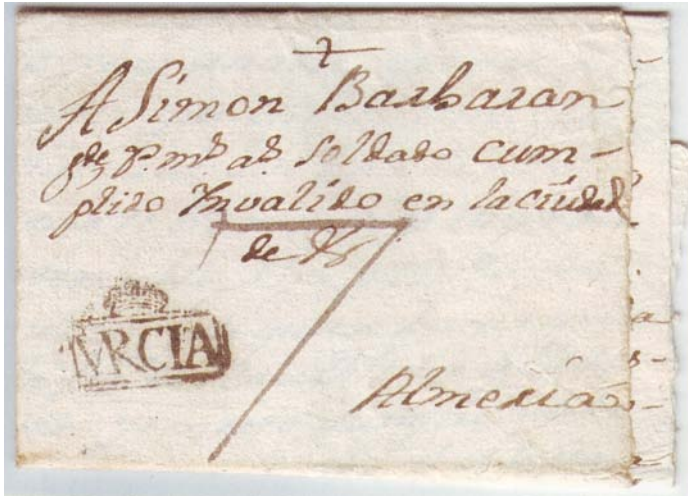 A Simon Barbaran
gde P. ms. as. Soldado cum-
plido Invalido en la ciudad
de
MVRCIA
Almeria